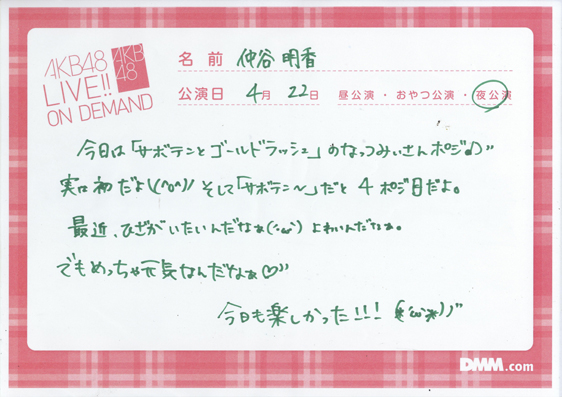 AKB48
LIVE!!
ON DEMAND
AKB
48
名前 仲谷明香
公演日 4月 22日 昼公演・おやつ公演・夜公演
今日は「サボテンとゴールドラッシュ」のなっつみぃさんポジ♪"
実は初だよ\(^o^)/ そして「サボテン〜」だと4ポジ目だよ。
最近、ひざがいたいんだなぁ(´;ω;`) よわいんだなぁ。
でもめっちゃ元気なんだなぁ♡"
今日も楽しかった!!! (*´ω`*)ノ"
DMM.com